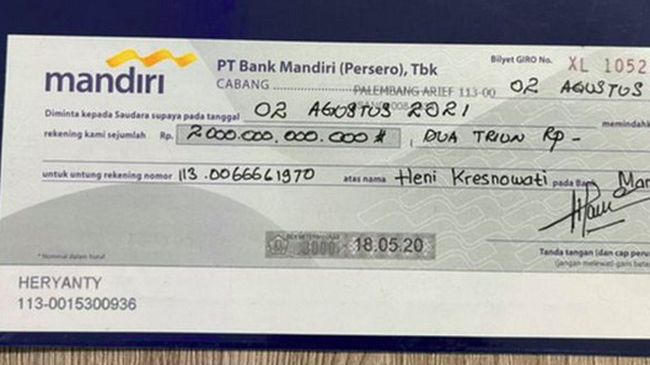 mandiri
PT Bank Mandiri (Persero), Tbk
Bilyet GIRO No. XL 1052
CABANG PALEMBANG ARIEF 113-00
02 AGUSTUS
Diminta kepada Saudara supaya pada tanggal 02 AGUSTUS 2021 memindahk
rekening kami sejumlah Rp. 2000.000.000.000 # , DUA TRIUN Rp -
untuk untung rekening nomor 113.0066661970 atas nama Heni Kresnowati pada Bank Man
BEA METERAI LUNAS
3000 18.05.20
* Nominal dalam huruf
Tanda tangan (dan cap perus
(jangan melewati garis batas
HERYANTY
113-0015300936